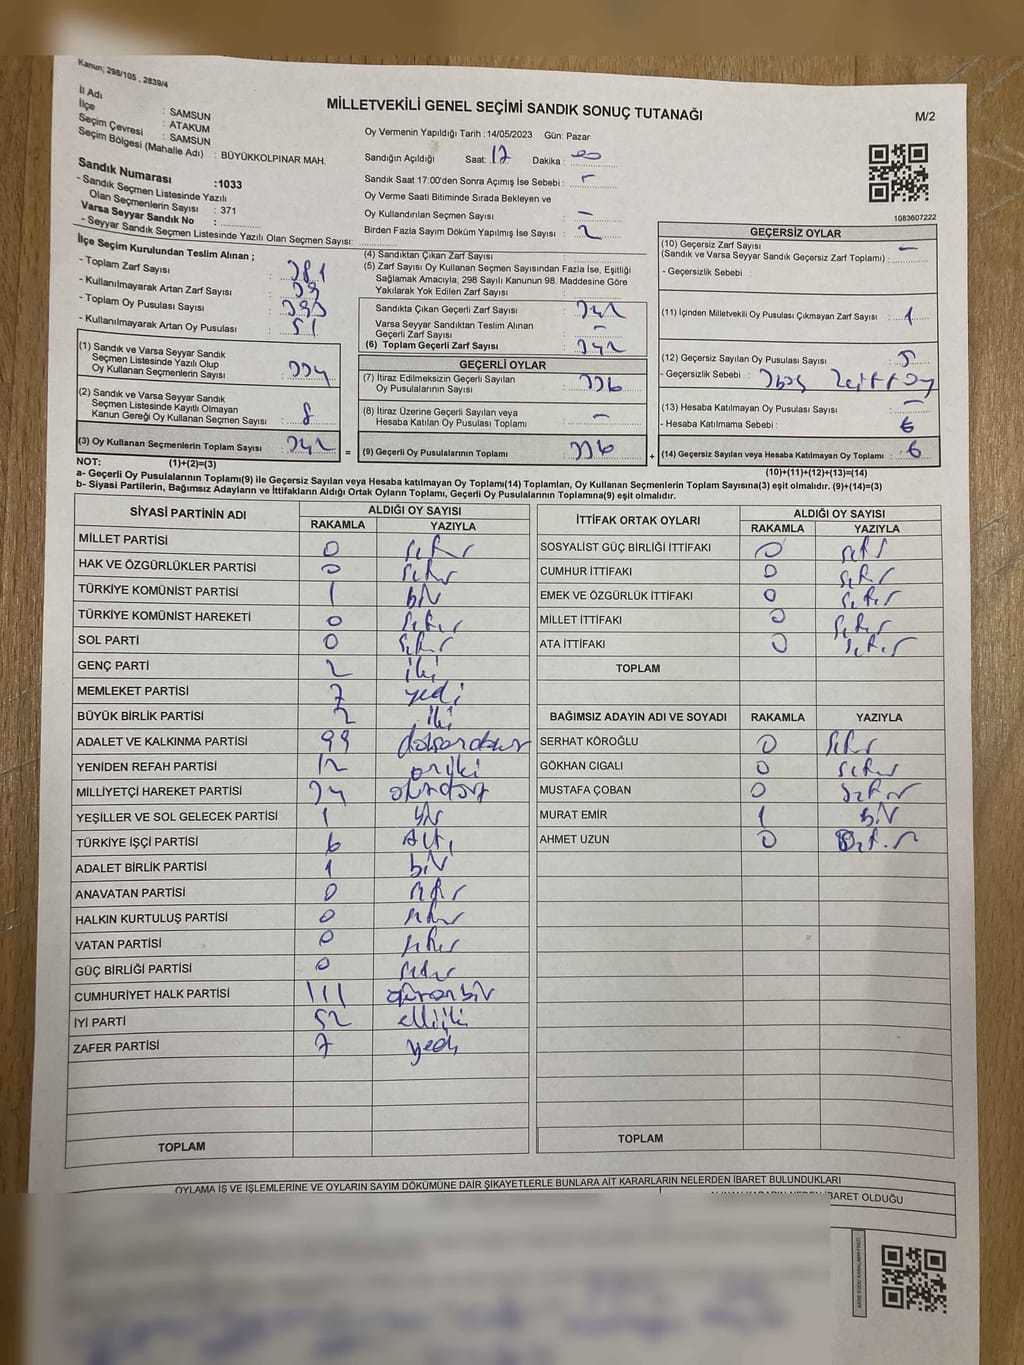 Kanun; 298/105 , 2839/4
MİLLETVEKİLİ GENEL SEÇİMİ SANDIK SONUÇ TUTANAĞI
M/2
İl Adı : SAMSUN
İlçe : ATAKUM
Seçim Çevresi : SAMSUN
Seçim Bölgesi (Mahalle Adı) : BÜYÜKKOLPINAR MAH.
Sandık Numarası :1033
- Sandık Seçmen Listesinde Yazılı
Olan Seçmenlerin Sayısı : 371
Varsa Seyyar Sandık No :
- Seyyar Sandık Seçmen Listesinde Yazılı Olan Seçmen Sayısı:
Oy Vermenin Yapıldığı Tarih : 14/05/2023 Gün: Pazar
Sandığın Açıldığı Saat: 17 Dakika : 00
Sandık Saat 17:00'den Sonra Açımış İse Sebebi : -
Oy Verme Saati Bitiminde Sırada Bekleyen ve
Oy Kullandırılan Seçmen Sayısı : -
Birden Fazla Sayım Döküm Yapılmış İse Sayısı : 2
1083607222
İlçe Seçim Kurulundan Teslim Alınan ;
- Toplam Zarf Sayısı : 381
- Kullanılmayarak Artan Zarf Sayısı : 39
- Toplam Oy Pusulası Sayısı : 393
- Kullanılmayarak Artan Oy Pusulası : 51
(1) Sandık ve Varsa Seyyar Sandık
Seçmen Listesinde Yazılı Olup
Oy Kullanan Seçmenlerin Sayısı : 334
(2) Sandık ve Varsa Seyyar Sandık
Seçmen Listesinde Kayıtlı Olmayan
Kanun Gereği Oy Kullanan Seçmen Sayısı : 8
(3) Oy Kullanan Seçmenlerin Toplam Sayısı : 342 =
(4) Sandıktan Çıkan Zarf Sayısı :
(5) Zarf Sayısı Oy Kullanan Seçmen Sayısından Fazla İse, Eşitliği
Sağlamak Amacıyla; 298 Sayılı Kanunun 98. Maddesine Göre
Yakılarak Yok Edilen Zarf Sayısı :
Sandıkta Çıkan Geçerli Zarf Sayısı : 342
Varsa Seyyar Sandıktan Teslim Alınan
Geçerli Zarf Sayısı : -
(6) Toplam Geçerli Zarf Sayısı : 342
GEÇERLİ OYLAR
(7) İtiraz Edilmeksizin Geçerli Sayılan
Oy Pusulalarının Sayısı : 336
(8) İtiraz Üzerine Geçerli Sayılan veya
Hesaba Katılan Oy Pusulası Toplamı : -
(9) Geçerli Oy Pusulalarının Toplamı : 336 +
GEÇERSİZ OYLAR
(10) Geçersiz Zarf Sayısı -
(Sandık ve Varsa Seyyar Sandık Geçersiz Zarf Toplamı) :
- Geçersizlik Sebebi :
(11) İçinden Milletvekili Oy Pusulası Çıkmayan Zarf Sayısı : 1
(12) Geçersiz Sayılan Oy Pusulası Sayısı : 5
- Geçersizlik Sebebi :
(13) Hesaba Katılmayan Oy Pusulası Sayısı : -
- Hesaba Katılmama Sebebi : 6
(14) Geçersiz Sayılan veya Hesaba Katılmayan Oy Toplamı : 6
NOT: (1)+(2)=(3) (10)+(11)+(12)+(13)=(14)
a- Geçerli Oy Pusulalarının Toplamı(9) ile Geçersiz Sayılan veya Hesaba katılmayan Oy Toplamı(14) Toplamları, Oy Kullanan Seçmenlerin Toplam Sayısına(3) eşit olmalıdır. (9)+(14)=(3)
b- Siyasi Partilerin, Bağımsız Adayların ve İttifakların Aldığı Ortak Oyların Toplamı, Geçerli Oy Pusulalarının Toplamına(9) eşit olmalıdır.
SİYASİ PARTİNİN ADI ALDIĞI OY SAYISI
RAKAMLA YAZIYLA
MİLLET PARTİSİ 0 sıfır
HAK VE ÖZGÜRLÜKLER PARTİSİ 0 sıfır
TÜRKİYE KOMÜNİST PARTİSİ 1 bir
TÜRKİYE KOMÜNİST HAREKETİ 0 sıfır
SOL PARTİ 0 sıfır
GENÇ PARTİ 2 iki
MEMLEKET PARTİSİ 7 yedi
BÜYÜK BİRLİK PARTİSİ 2 iki
ADALET VE KALKINMA PARTİSİ 99
YENİDEN REFAH PARTİSİ 12 oniki
MİLLİYETÇİ HAREKET PARTİSİ 34
YEŞİLLER VE SOL GELECEK PARTİSİ 1 bir
TÜRKİYE İŞÇİ PARTİSİ 6 Altı
ADALET BİRLİK PARTİSİ 1 bir
ANAVATAN PARTİSİ 0 sıfır
HALKIN KURTULUŞ PARTİSİ 0 sıfır
VATAN PARTİSİ 0 sıfır
GÜÇ BİRLİĞİ PARTİSİ 0 sıfır
CUMHURİYET HALK PARTİSİ 111
İYİ PARTİ 52 elliiki
ZAFER PARTİSİ 7 yedi
TOPLAM
İTTİFAK ORTAK OYLARI ALDIĞI OY SAYISI
RAKAMLA YAZIYLA
SOSYALİST GÜÇ BİRLİĞİ İTTİFAKI 0 sıfır
CUMHUR İTTİFAKI 0 sıfır
EMEK VE ÖZGÜRLÜK İTTİFAKI 0 sıfır
MİLLET İTTİFAKI 0 sıfır
ATA İTTİFAKI 0 sıfır
TOPLAM
BAĞIMSIZ ADAYIN ADI VE SOYADI RAKAMLA YAZIYLA
SERHAT KÖROĞLU 0 sıfır
GÖKHAN CIGALI 0 sıfır
MUSTAFA ÇOBAN 0 sıfır
MURAT EMİR 1 bir
AHMET UZUN 0 sıfır
TOPLAM
OYLAMA İŞ VE İŞLEMLERİNE VE OYLARIN SAYIM DÖKÜMÜNE DAİR ŞİKAYETLERLE BUNLARA AİT KARARLARIN NELERDEN İBARET BULUNDUKLARI
İBARET OLDUĞU